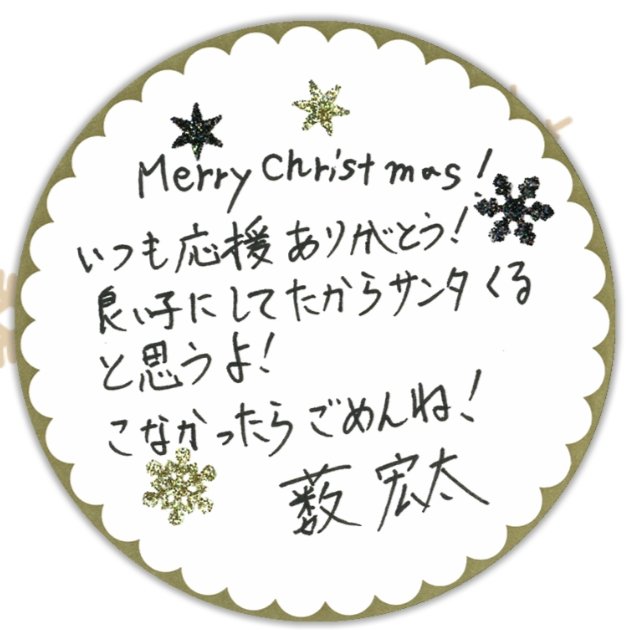 Merry Christmas!
いつも応援ありがとう!
良い子にしてたからサンタくる
と思うよ!
こなかったらごめんね!
薮 宏太